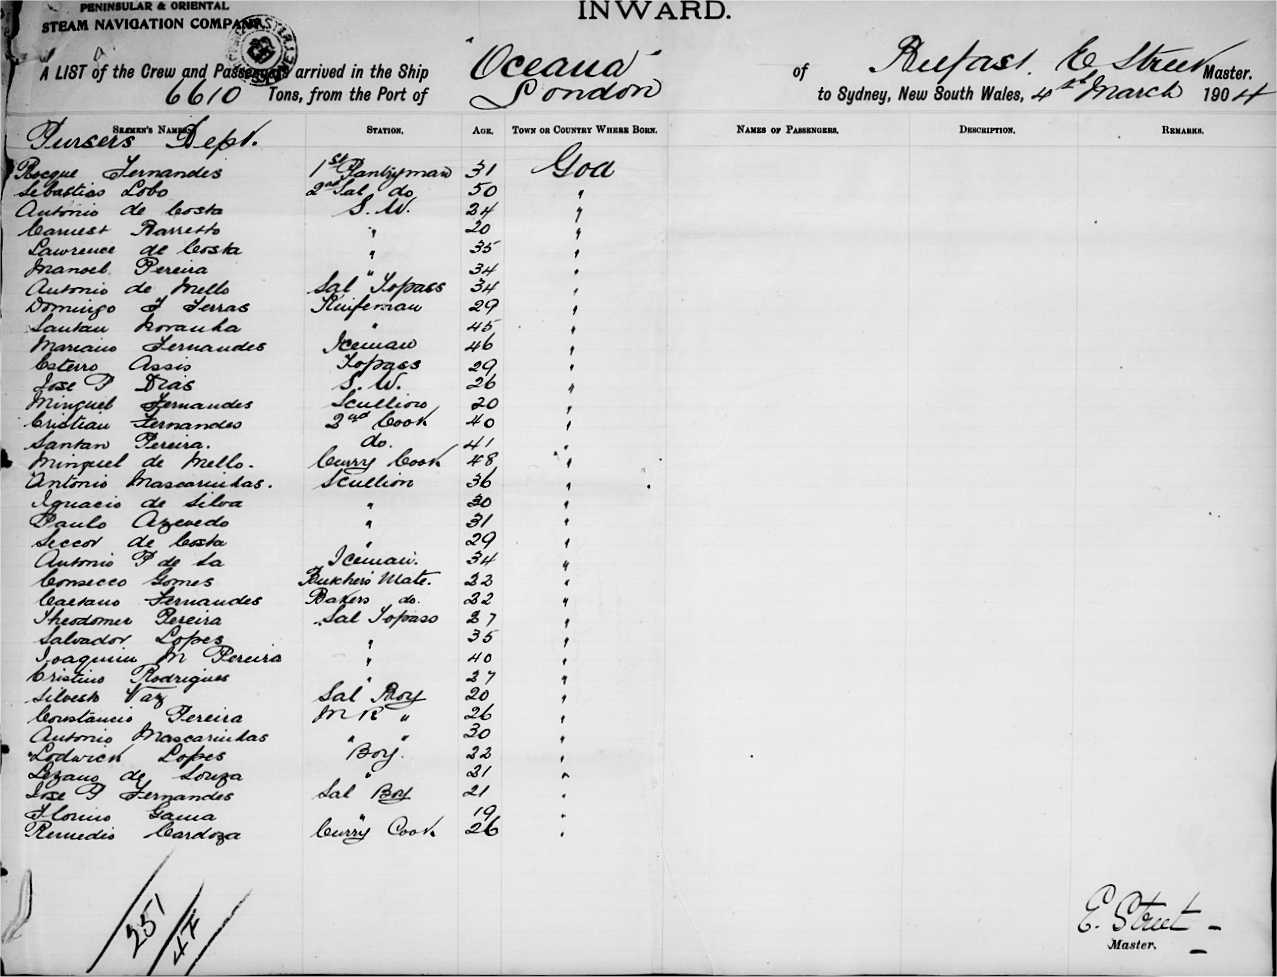 PENINSULAR & ORIENTAL
INWARD.
STEAM NAVIGATION COMPANY.
A LIST of the Crew and Passengers arrived in the Ship "Oceana" of Belfast, E Street Master.
6610 Tons, from the Port of London to Sydney, New South Wales, 4th March 1904
SEAMEN'S NAMES. STATION. AGE. TOWN OR COUNTRY WHERE BORN. NAMES OF PASSENGERS. DESCRIPTION. REMARKS.
Pursers Dept.
Rocque Fernandes 1st Pantryman 31 Goa
Sebastiao Lobo 2nd Sal do 50 "
Antonio de Costa S. W. 24 "
Carnest Barretto " 20 "
Lawrence de Costa " 35 "
Manoel Pereira " 34 "
Antonio de Mello Sal Topass 34 "
Domingo F Ferras Knifeman 29 "
Santan Noranha " 45 "
Mariano Fernandes Iceman 46 "
Esterro Assis Topass 29 "
Jose P Dias S. W. 26 "
Minguel Fernandes Scullion 20 "
Cristian Fernandes 2nd Cook 40 "
Santan Pereira. do. 41 "
Minguel de Mello. Curry Cook 48 "
Antonio Mascarinhas. Scullion 36 "
Ignacio de Silva " 30 "
Paulo Azevedo " 31 "
Seccor de Costa " 29 "
Antonio P de Sa Iceman. 34 "
Consecco Gomes Butchers Mate. 22 "
Caetano Fernandes Bakers do. 22 "
Theodomer Pereira Sal Topass 27 "
Salvador Lopes " 35 "
Joaquim M Pereira " 40 "
Cristino Rodrigues " 27 "
Silvest Vaz Sal Boy 20 "
Constancio Pereira M R " 26 "
Antonio Mascarinhas " " 30 "
Lodwick Lopes Boy. 22 "
Lezano de Souza " 21 "
Jose P Fernandes Sal Boy 21 "
Florino Gama " 19 "
Remedio Cardoza Curry Cook 26 "
251
47
E. Street
Master.